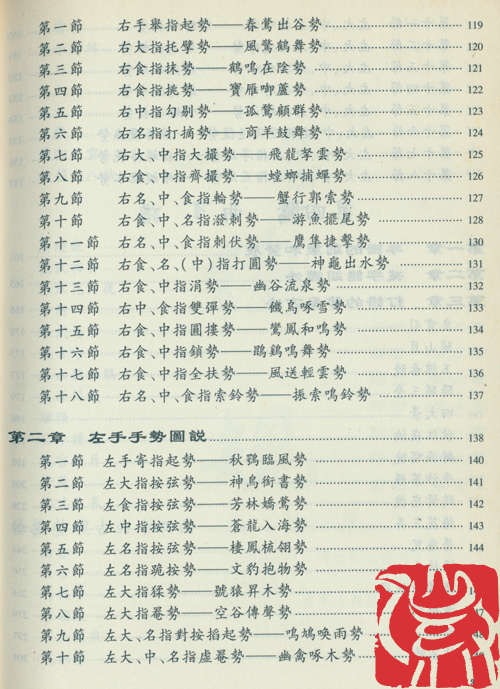 第一節 右手舉指起勢——春鶯出谷勢 119
第二節 右大指托擘勢——風驚鶴舞勢 120
第三節 右食指抹勢——鶴鳴在陰勢 121
第四節 右食指挑勢——賓雁啣蘆勢 122
第五節 右中指勾剔勢——孤鶩顧群勢 123
第六節 右名指打摘勢——商羊鼓舞勢 124
第七節 右大、中指大撮勢——飛龍拏雲勢 125
第八節 右食、中指齊撮勢——螳螂捕蟬勢 126
第九節 右名、中、食指輪勢——蟹行郭索勢 127
第十節 右食、中、名指潑刺勢——游魚擺尾勢 128
第十一節 右名、中、食指刺伏勢——鷹隼捷擊勢 130
第十二節 右食、名、(中)指打圓勢——神龜出水勢 131
第十三節 右食、中指涓勢——幽谷流泉勢 132
第十四節 右中、食指雙彈勢——饑烏啄雪勢 133
第十五節 右食、中指圓摟勢——鸞鳳和鳴勢 134
第十六節 右食、中指鎖勢——鵾鷄鳴舞勢 135
第十七節 右食、中指全扶勢——風送輕雲勢 136
第十八節 右名、中、食指索鈴勢——振索鳴鈴勢 137
第二章 左手手勢圖説 138
第一節 左手寄指起勢——秋鶚臨風勢 140
第二節 左大指按弦勢——神鳥銜書勢 141
第三節 左食指按弦勢——芳林嬌鶯勢 142
第四節 左中指按弦勢——蒼龍入海勢 143
第五節 左名指按弦勢——棲鳳梳翎勢 144
第六節 左名指跪按勢——文豹抱物勢
第七節 左大指猱勢——號猿昇木勢
第八節 左大指罨勢——空谷傳聲勢
第九節 左大、名指對按搯起勢——鳴鳩喚雨勢
第十節 左大、中、名指虛罨勢——幽禽啄木勢